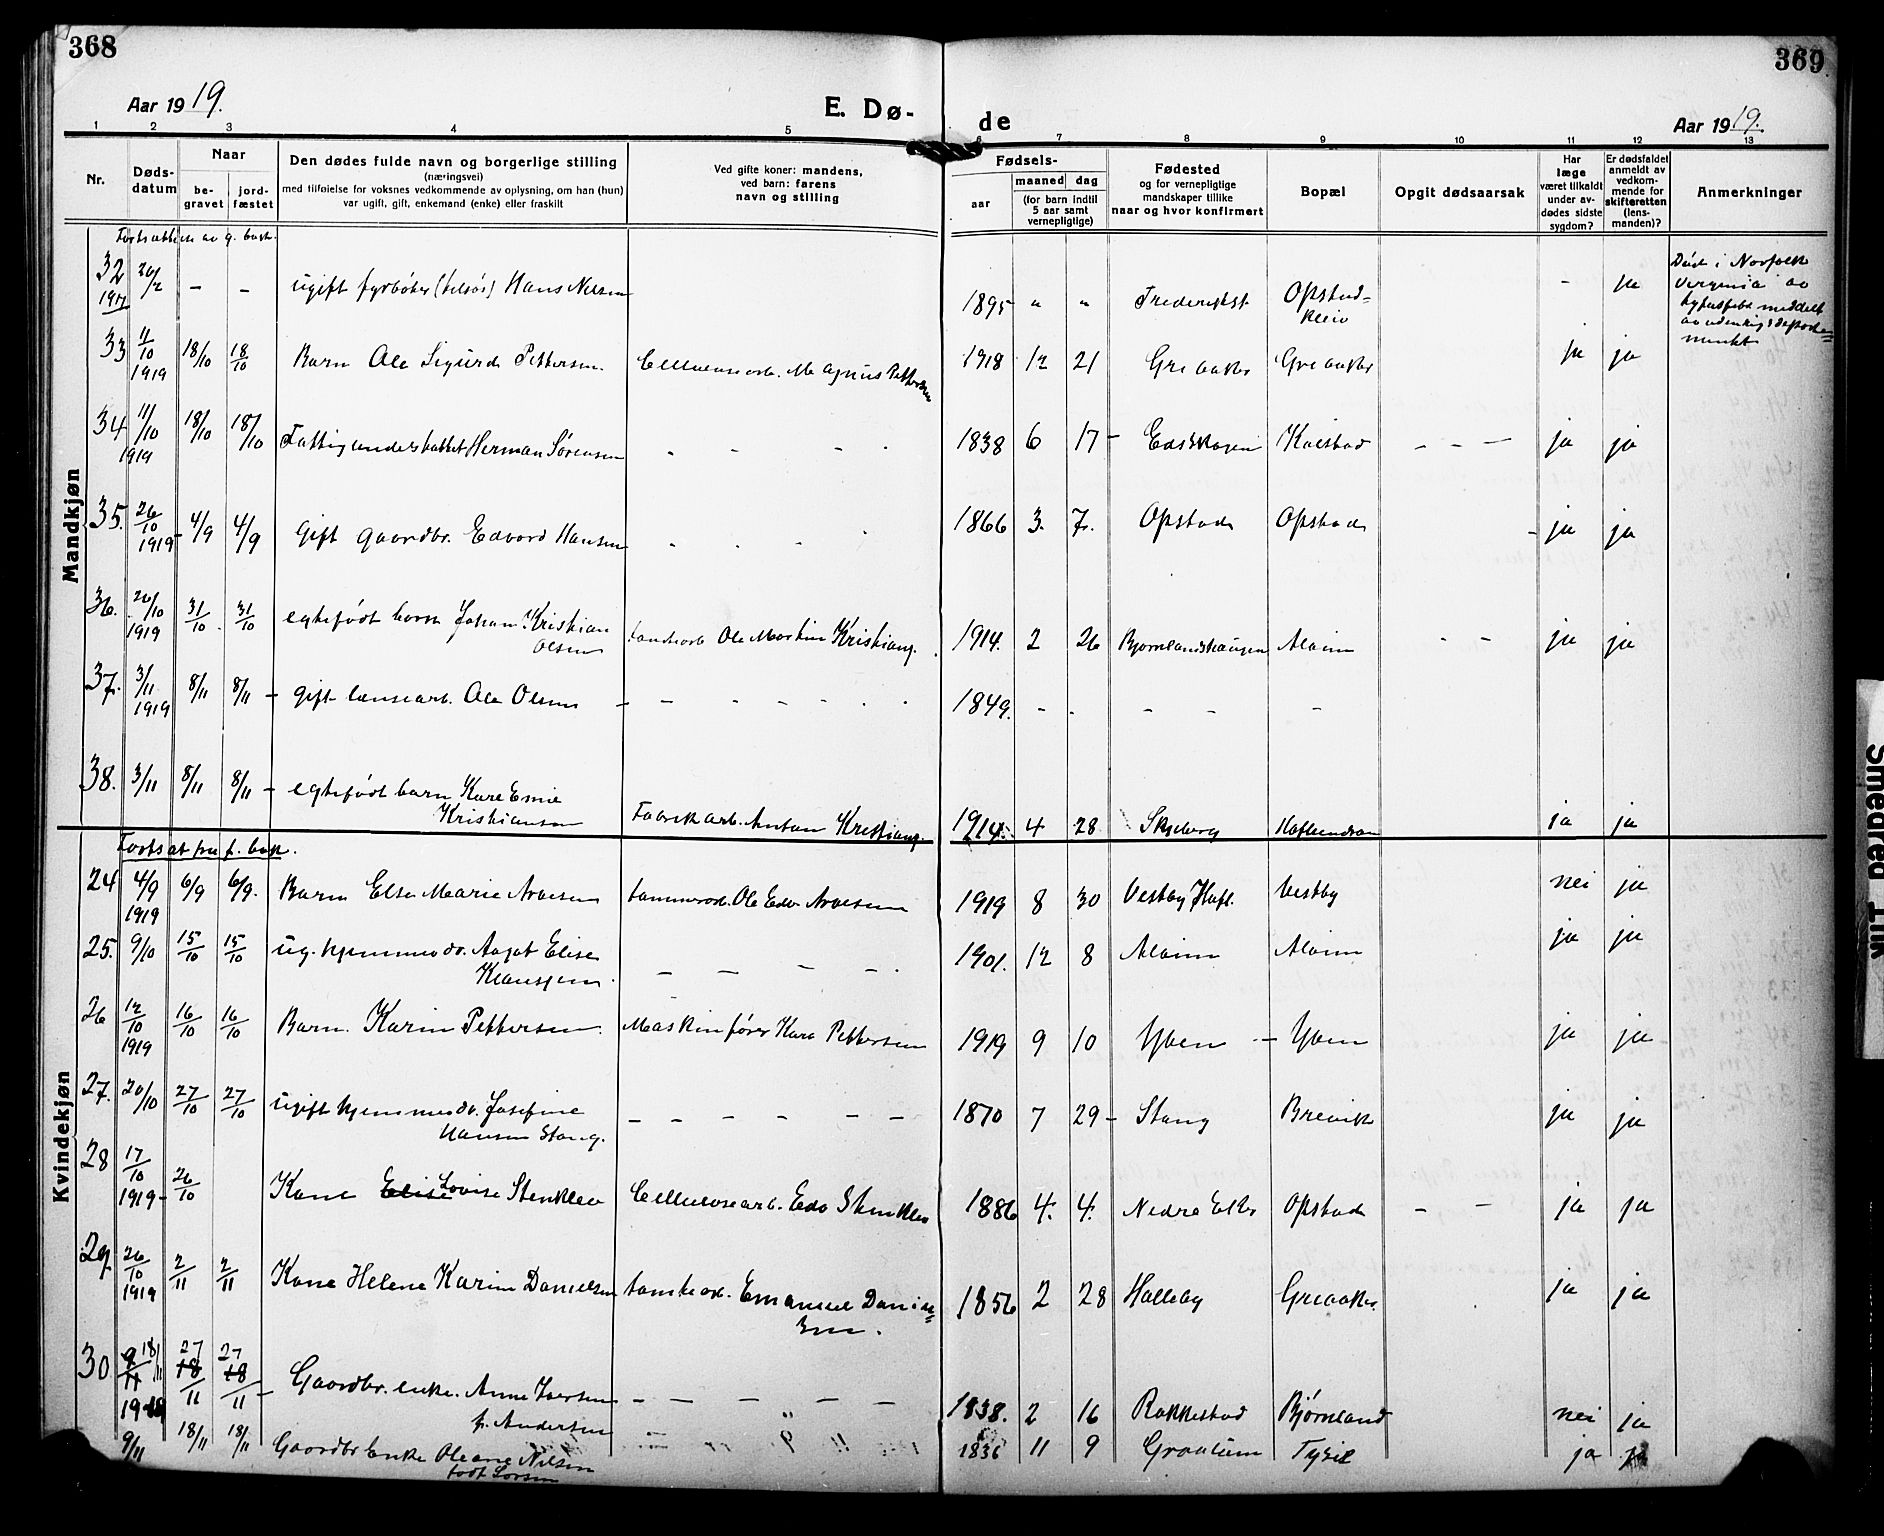 368
369
Aar 1919.
E. Dø-
de
Aar 1919.
1 2 3 4 5 6 7 8 9 10 11 12 13
Nr.
Døds-
datum
Naar
be-
gravet
jord-
fæstet
Den dødes fulde navn og borgerlige stilling
(næringsvei)
med tilføielse for voksnes vedkommende av oplysning, om han (hun)
var ugift, gift, enkemand (enke) eller fraskilt
Ved gifte koner: mandens,
ved barn: farens
navn og stilling
Fødsels-
aar
maaned
dag
(for barn indtil
5 aar samt
vernepligtige)
Fødested
og for vernepligtige
mandskaper tillike
naar og hvor konfirmert
Bopæl
Opgit dødsaarsak
Har
læge
været tilkaldt
under av-
dødes sidste
sygdom?
Er dødsfaldet
anmeldt av
vedkom-
mende for
skifteretten
(lens-
manden)?
Anmerkninger
Mandkjøn
32 - - ugift fyrbøter (tilsøs) Hans Nilsen 1895 " " Frederikst Opstad- - ja
Død i Norfolk
Virginia av
33 11/10 1919 18/10 18/10 Barn Ole Sigurd Pettersen Cellulosearb. Magnus Pettersen 1918 12 21 Greaaker Greaaker ja ja
34 11/10 1919 18/10 18/10 Fattigunderstøttet Herman Sørensen - - - - 1838 6 17 - Edsskogen Kalstad - - - ja ja
35. 26/10 1919 - 4/9 4/9 gift gaardbr. Edvard Hansen 1866 3. 7. Opstad Opstad - ja ja
36. 26/10 1919 31/10 31/10 egtefødt barn Johan Kristian
Olsen
Ole Martin Kristians. 1914. 2 26 Bjørnlandshaugen Alvim - - ja ja
37. 3/11 1919 8/11 8/11 - gift lænsearb. Ole Olsen - - - - - 1849. - - - - -
38. 3/11 8/11 8/11 - egtefødt barn Kare Emil
Kristiansen
Fabrikarb. Anton Kristians. 1914. 4 28 Skjeberg Hafslundsøen ja ja
Kvindekjøn
Fortsat fra f. bok.
24 4/9 1919 6/9 6/9. Barn Else Marie Arvesen tømmerarb. Ole Edv. Arvesen 1919 8 30 Vestby Hafl. Vestby nei ja
25. 9/10 15/10 15/10 ug. hjemmedv. Aagot Elise
Klaussen.
- - - - 1901. 12 8 Alvim Alvim ja ja
26 12/10 1919 16/10 16/10 Barn. Karin Pettersen. Maskinfører Karl Pettersen 1919 9 10 Yven - Yven ja ja
27. 20/10 27/10 27/10 ugift hjemmedv. Josefine
Hansen Stang.
- - - - - - 1870 7 29 - Stang Brevik ja ja
28 17/10 1919 - 26/10 Kone Elise Lovise Stenklev Cellulosearb. Edv Stenklev 1886 4. 4. Nedre Elkr Opstad - - ja ja
29. 26/10 1919 2/11 2/11 Kone Helene Karin Danielsen tomtearb. Emanuel Daniel=
sen.
1856 2 28 Halleby Greaaker. ja ja
30 18/11 27/11 27/11 - Gaardbr. enke. Anne Iversen
f. Andersen
- - - - - 1838. 2 16 Rakkestad Bjørnland nei ja
9/11 18/11 18/11 Gaardbr Enke Oleane Nilsen
født Larsen
1836 11 9 Graalum Tysil ja ja
Smedrød 1116